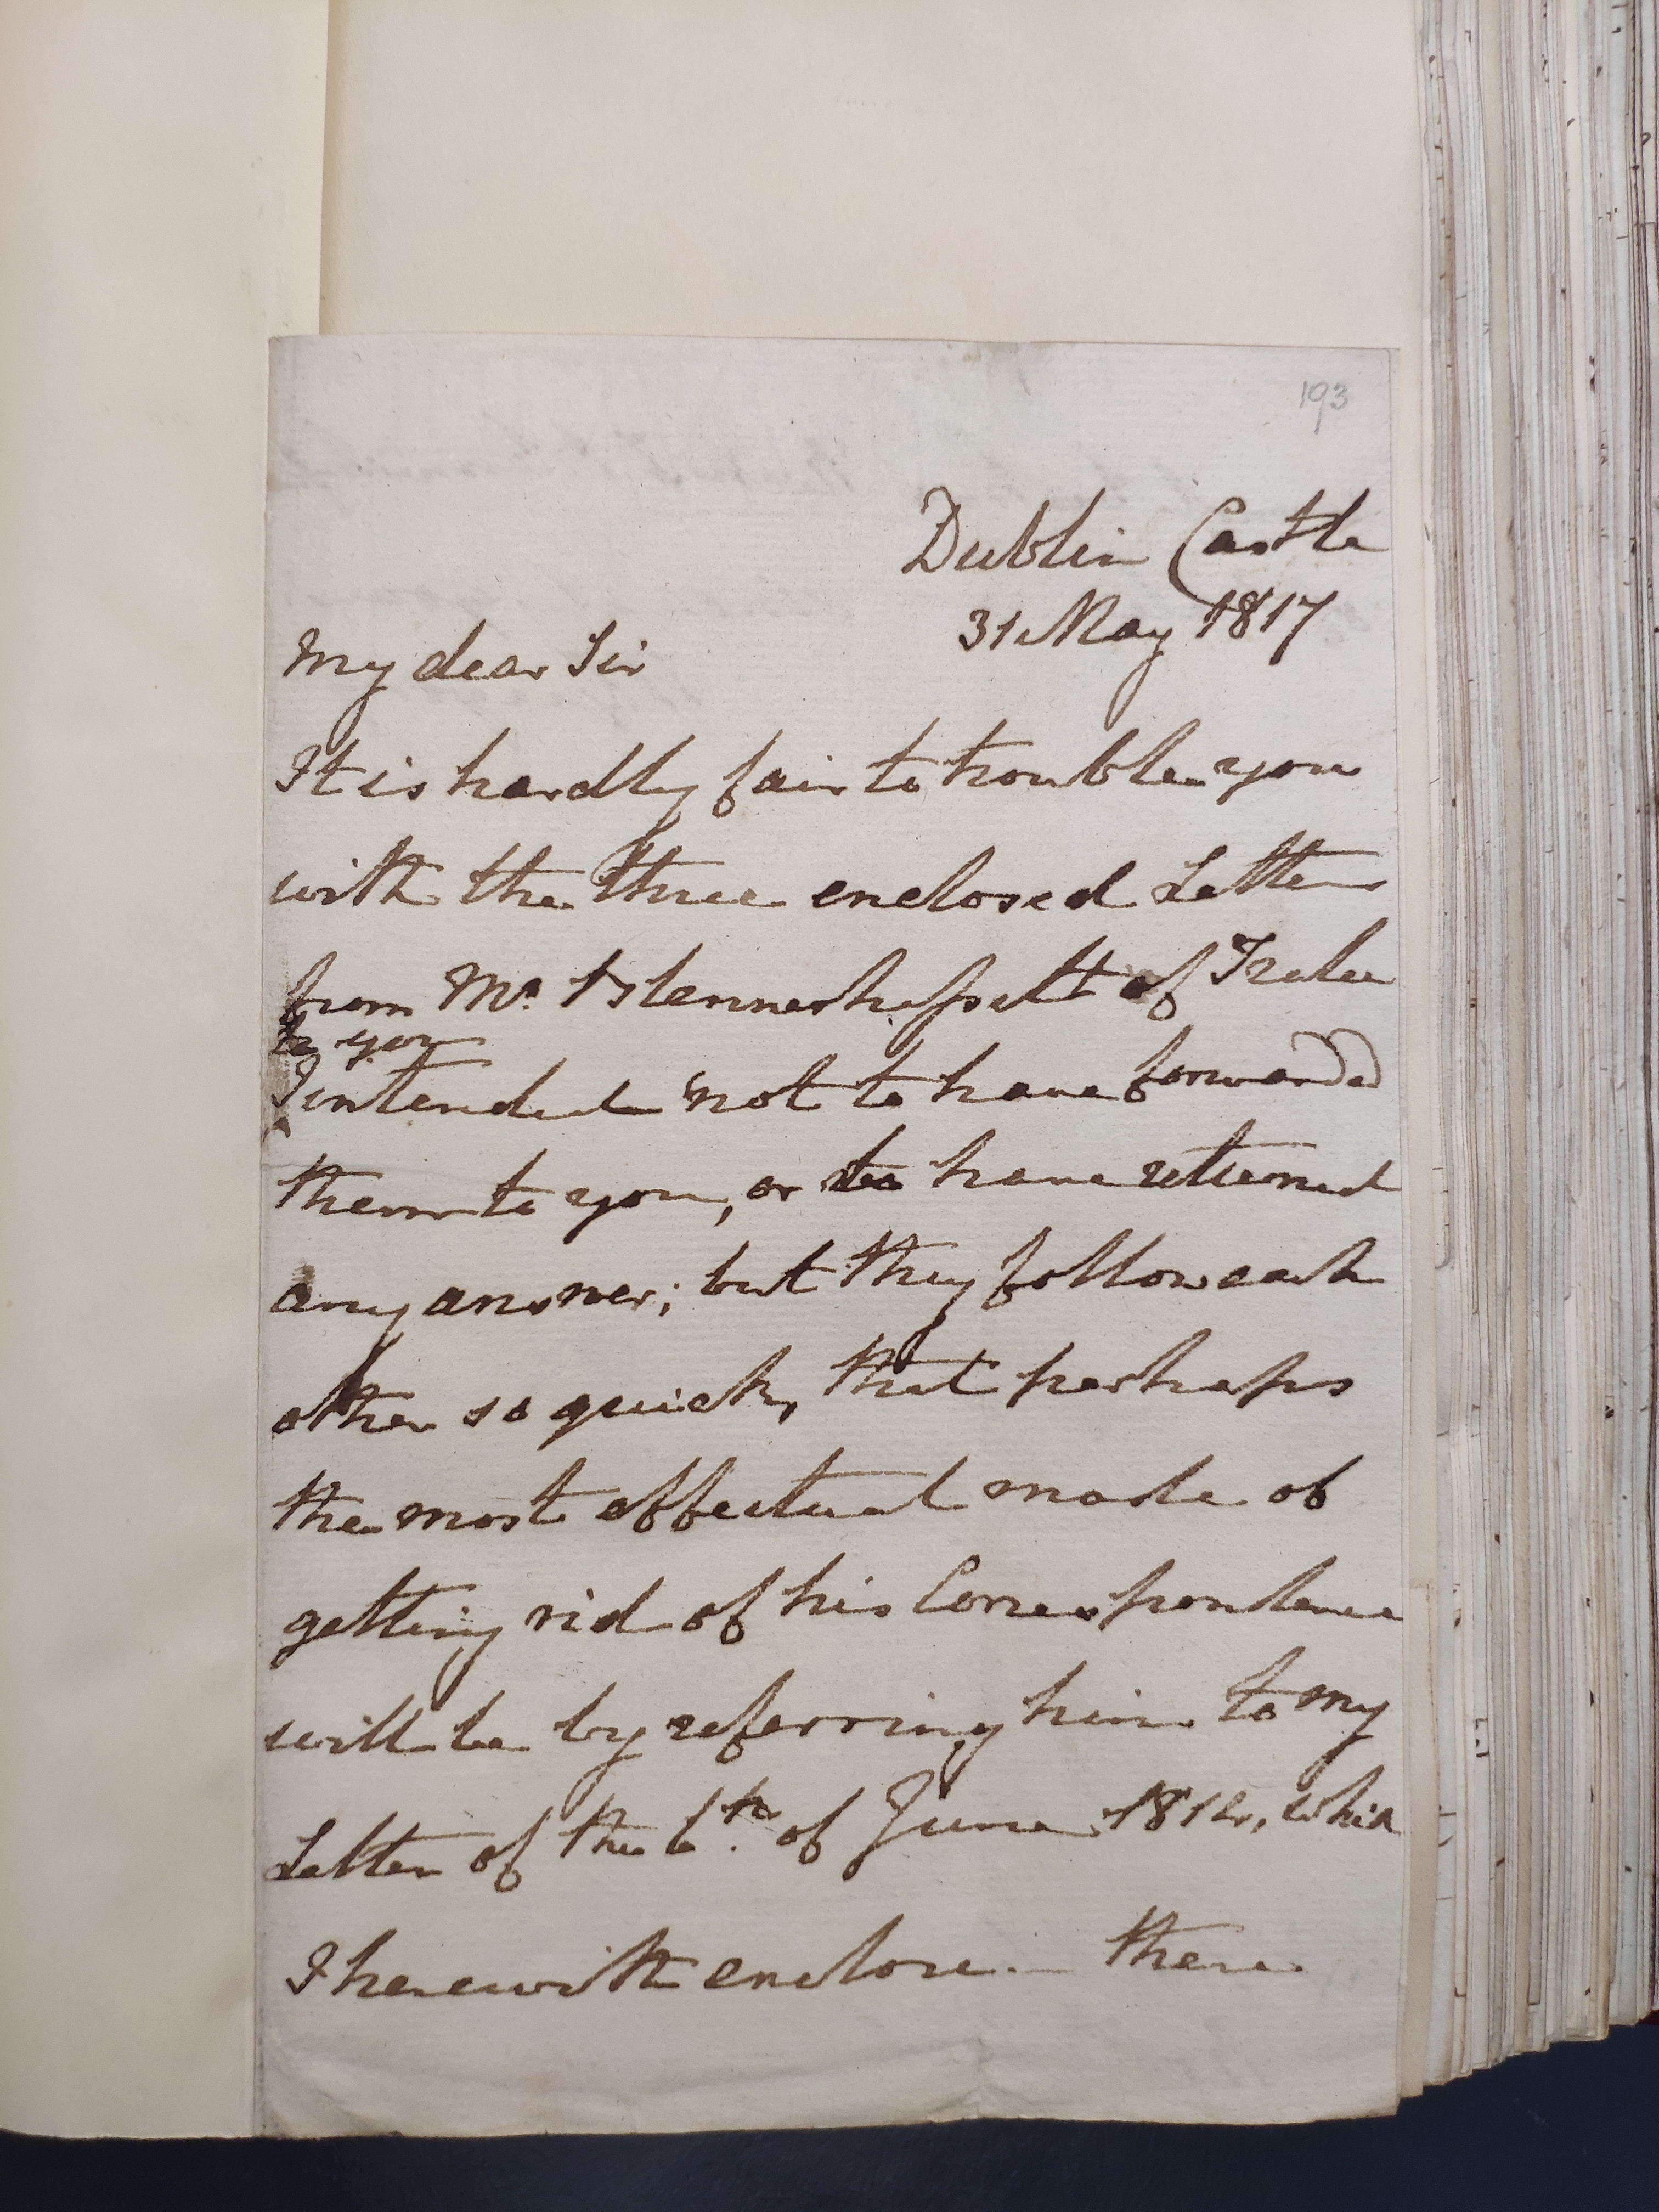 193
Dublin Castle
31 May 1817
My dear Sir
It is hardly fair to trouble you
with the three enclosed Letters
from Mr. Blennerhassett of Tralee
to you
I intended not to have forwarded
them to you, or to have returned
any answer; but they follow each
other so quick, that perhaps
the most effectual mode of
getting rid of his Correspondence
will be by referring him to my
Letter of the 6th. of June 1814, which
I herewith enclose. - There